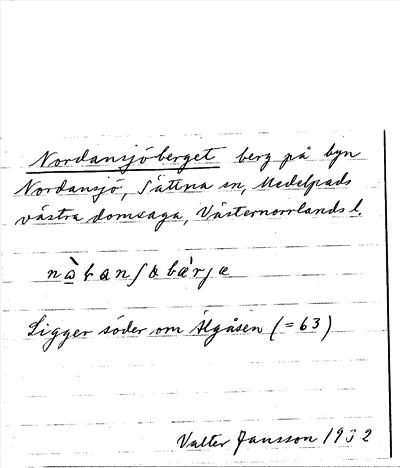 Nordansjöberget berg på byn
Nordansjö, Sättna sn, Medelpads
västra domsaga, Västernorrlands l.
Ligger söder om Älgåsen (=63)
Valter Jansson 1932